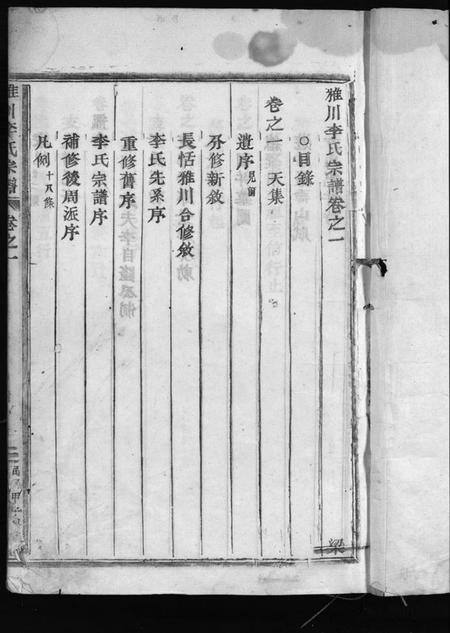 雅川李氏宗譜卷之一
○目錄
卷之一 天集
遺序 見前
夘修新敘
長恬雅川合修敘
李氏先系序
重修舊序
李氏宗譜序
補修後周派序
凡例 十八條
雅川李氏宗譜 卷之一
梁